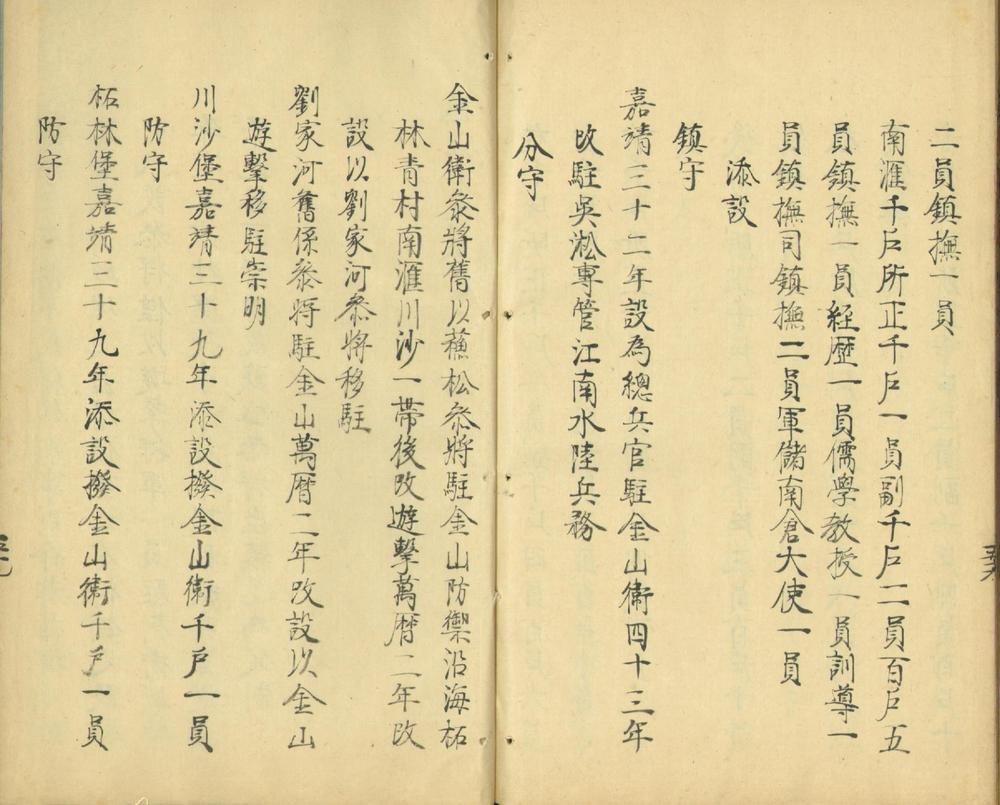 二員鎮撫一員
南滙千戶所正千戶一員副千戶二員百戶五
員鎮撫一員經歷一員儒學教授一員訓導一
員鎮撫司鎮撫二員軍儲南倉大使一員
添設
鎮守
嘉靖三十二年設為總兵官駐金山衛四十三年
改駐吳淞專管江南水陸兵務
分守
金山衛叅將舊以蘓松叅將駐金山防禦沿海柘
林青村南滙川沙一帶後改遊擊萬曆二年改
設以劉家河叅將移駐
劉家河舊係叅將駐金山萬曆二年改設以金山
遊擊移駐崇明
川沙堡嘉靖三十九年添設撥金山衛千戶一員
防守
柘林堡嘉靖三十九年添設撥金山衛千戶一員
防守